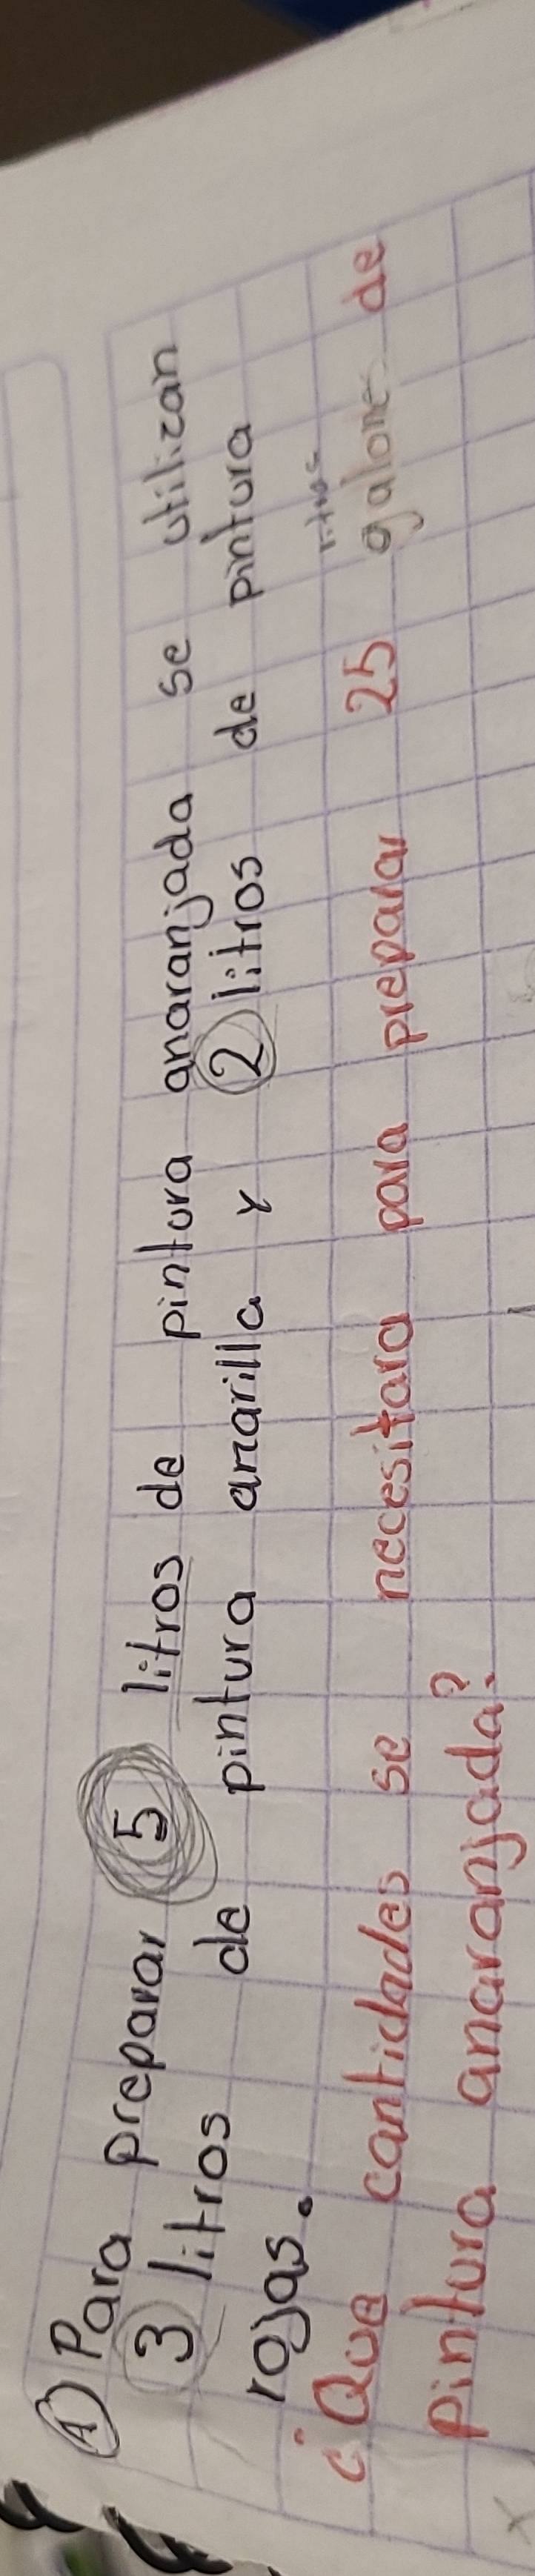 A Para preparar 5 litros de pintura anaranjada se utilizan
3 litros de pintura amarilla y 2 litros de pintura
rojas.
litros
¿Que cantidades se necesitara para preparar 25 galones de
pintura anaranjada?